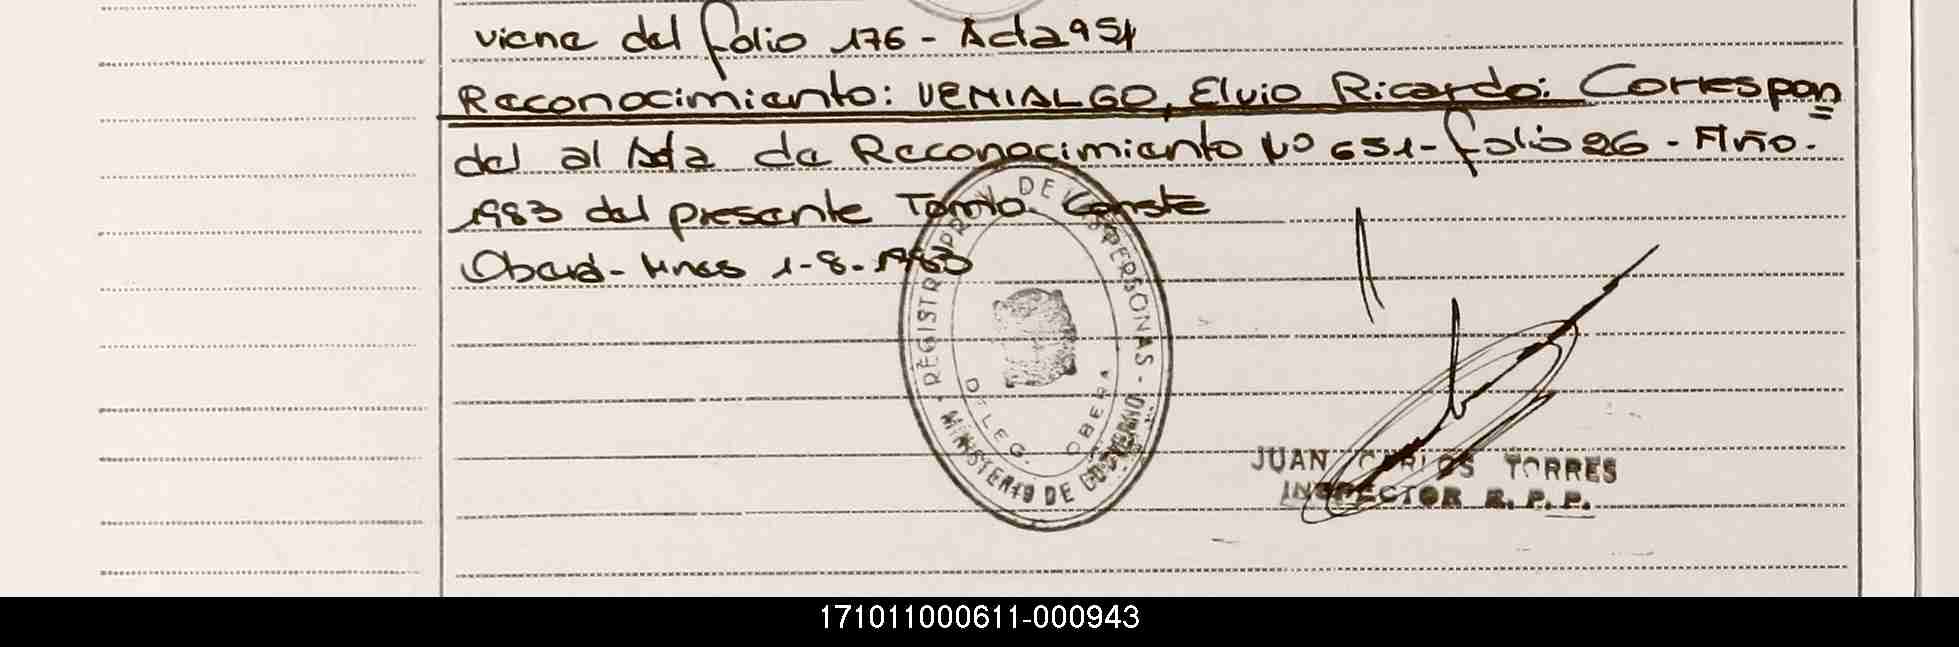 viene del folio 176 - Acta 954
Reconocimiento: VENIALGO, Elvio Ricardo: Correspon
del al Acta de Reconocimiento Nº 651 - folio 26 - Año.
1983 del presente Tomo. Conste
Oberá - Mnes 1-8-1983
REGISTRO PROV. DE LAS PERSONAS -
MINISTERIO DE GOBIERNO
DELEG. OBERA
JUAN CARLOS TORRES
INSPECTOR R. P. P.
171011000611-000943